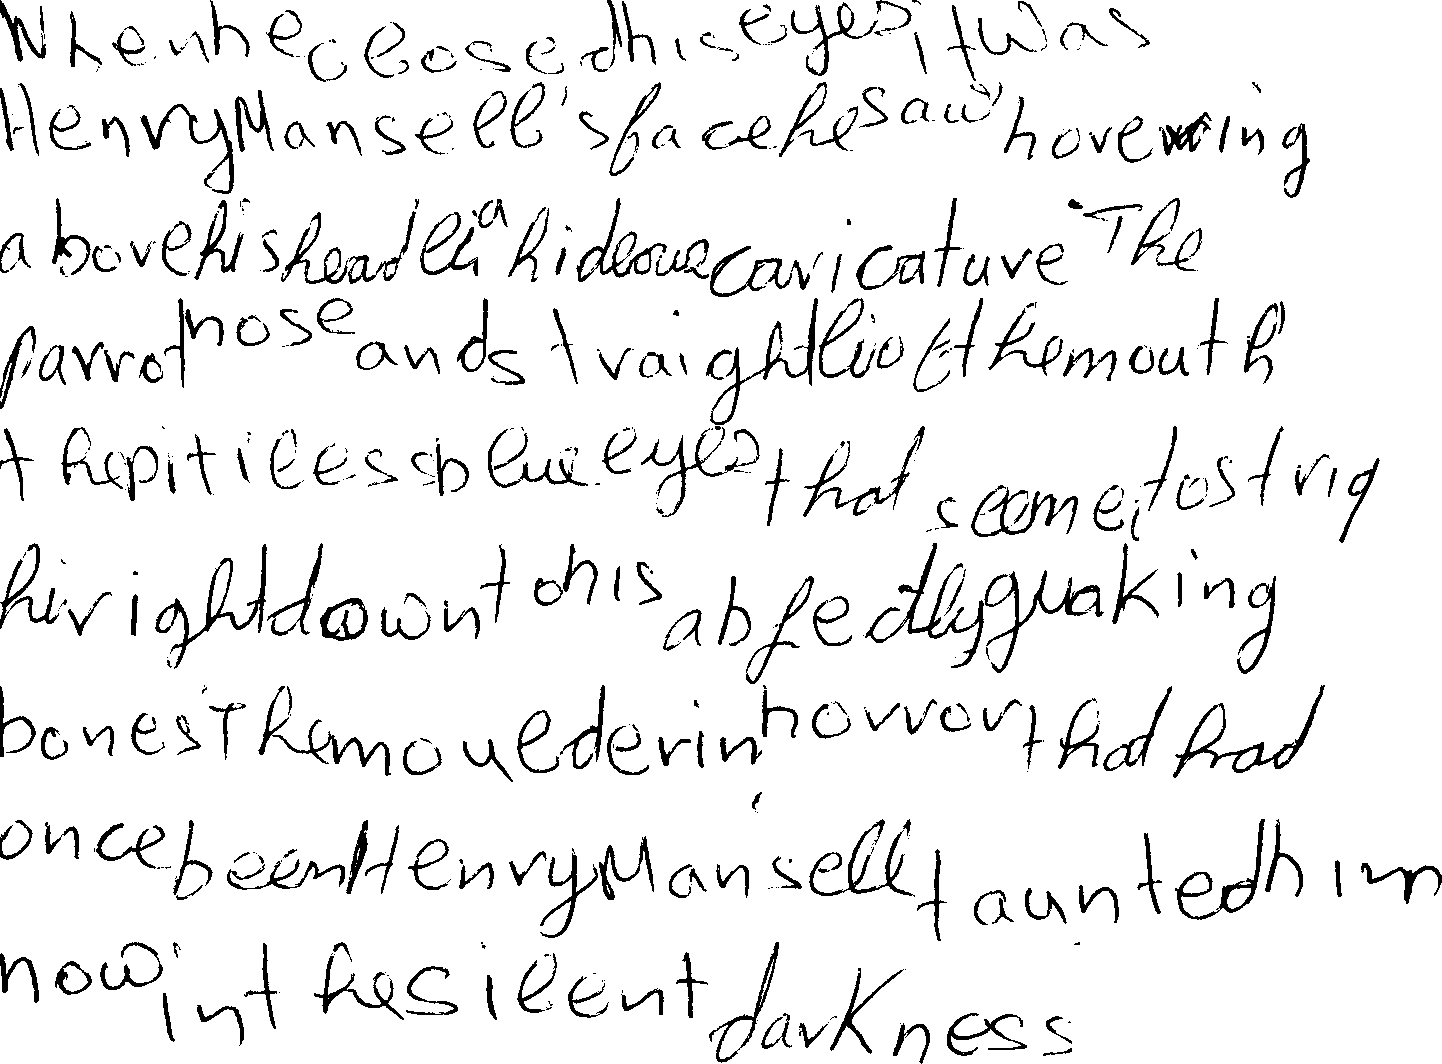 When he closed his eyes, it was
Henry Mansell's face he saw hovering
above his head a hideous caricature. The
parrot nose and straight of the mouth
the pitiless blue eyes that seemed to strip
right down to his abjectly quaking
bones. The moulderin horror that had
once been Henry Mansell taunted him
now in the silent darkness